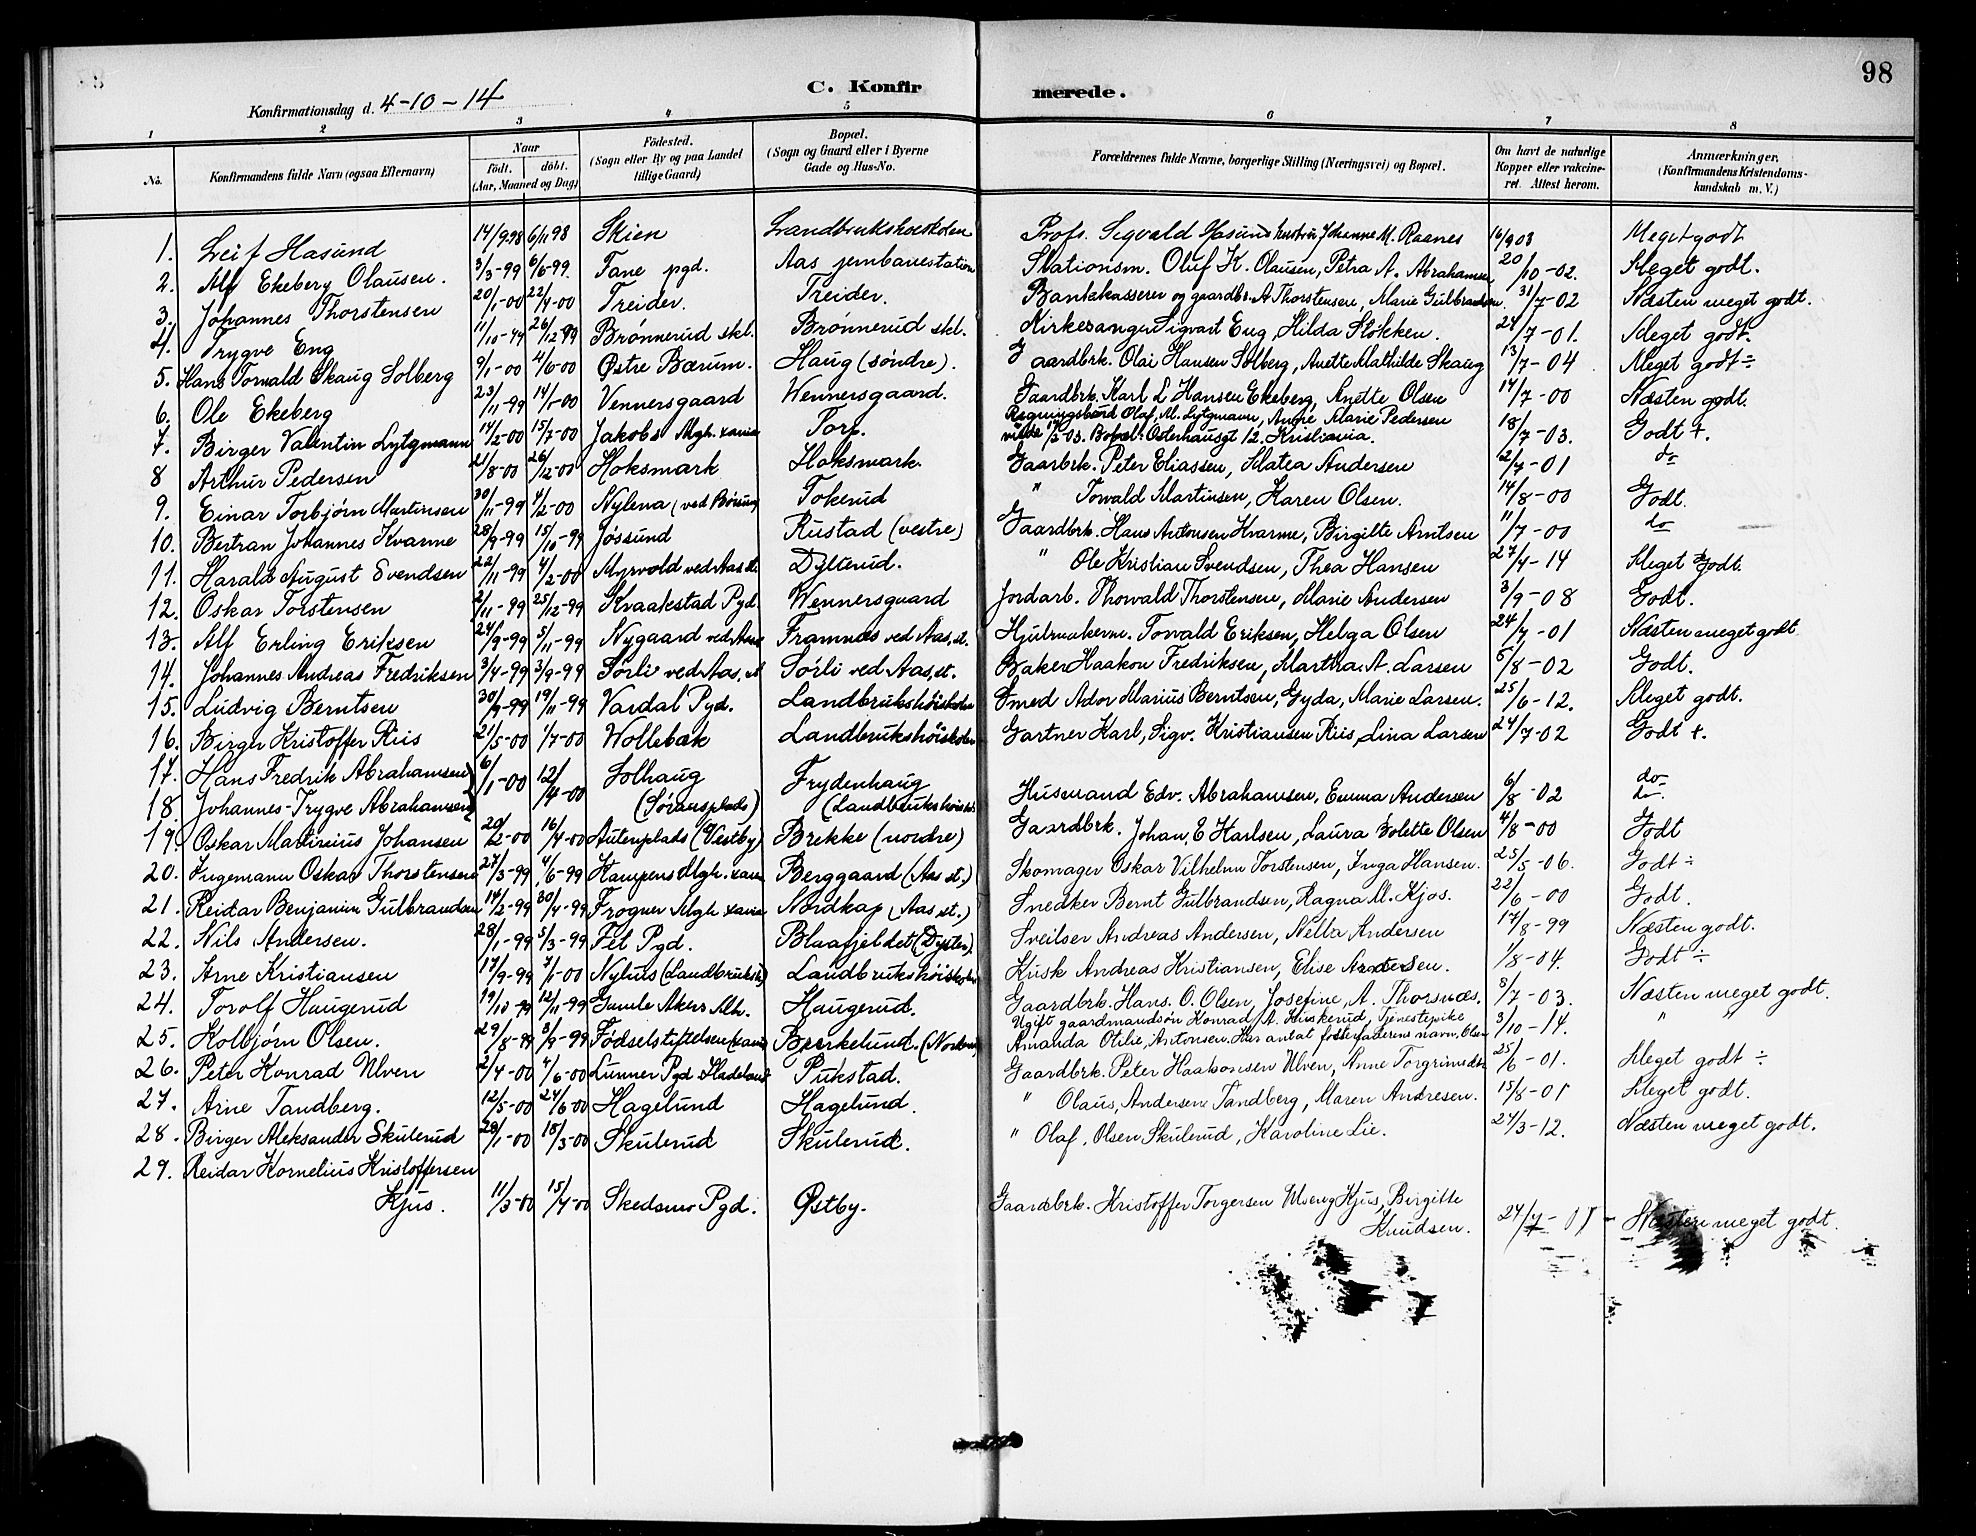 98
C. Konfirmerede.
Konfirmationsdag d. 4-10-14
1 2 3 4 5 6 7 8
No. Konfirmandens fulde Navn (ogsaa Efternavn) Naar födt. döbt. (Aar, Maaned og Dag) Födested. (Sogn eller By og paa Landet tillige Gaard) Bopæl. (Sogn og Gaard eller i Byerne Gade og Hus-No. Forældrenes fulde Navne, borgerlige Stilling (Næringsvei) og Bopæl. Om havt de naturlige Kopper eller vakcineret. Attest herom. Anmærkninger. (Konfirmandens Kristendomskundskab m. V.)
1. Leif Hasund 14/9 98 6/11 98 Skien Landbrukshøiskolen Profs. Sigvald Hasund hustru Johanne M. Raanes 16/9 03 Meget godt
2. Alf Ekeberg Olausen. 3/3-99 6/6-99. Tane pgd. Aas jernbanestation Stationsm. Oluf K. Olausen, Petra A. Abrahamsen 20/10-02. Meget godt.
3. Johannes Thorstensen 20/1-00 22/4-00 Treider. Treider. Bankkasserer og gaardbr. A Thorstensen, Marie Gulbrandsen 31/7-02 Næsten meget godt.
4. Trygve Eng 11/10-99 26/12-99 Brønnerud skl. Brønnerud skl. Kirkesanger Sigvart Eng, Hilda Stokken. 24/7-01. Meget godt.
5. Hans Torvald Skaug Solberg 9/1-00 4/6-00 Østre Bærum. Haug (söndre). Gaardbrk. Olai Hansen Solberg, Anette Mathilde Skaug 13/7-04 Meget godt÷
6. Ole Ekeberg 23/11-99 14/1-00 Vennersgaard Wennersgaard. Gaardbrk. Karl L Hansen Ekeberg, Anette Olsen 14/7-00 Næsten godt.
7. Birger Valentin Lytzmann 14/2-00 15/7-00 Jakobs Mgh. xania Torp. Regningsbud Olaf, M. Lytzmann, Andre Marie Pedersen
viede 17/2 03. Bopæl: Osterhausgt 12. Kristiania. 18/7-03. Godt +.
8 Arthur Pedersen 21/8-00 26/12-00 Hoksmark Hoksmark. Gaarbrk. Peter Eliassen, Matea Andersen 2/7-01 do
9. Einar Torbjørn Martinsen 30/11-99 4/2-00 Nylena (ved Börsum) Tokerud " Torvald Martinsen, Karen Olsen. 14/8-00 Godt.
10. Bertran Johannes Kvarme 28/9-99 15/10-99 Jössund Rustad (vestre) Gaardbrk. Hans Antonsen Kvarme, Birgitte Arntsen 11/7-00 do
11. Harald August Svendsen 22/11-99 4/2-00 Myrvold ved Aas st. Dysterud. " Ole Kristian Svendsen, Thea Hansen 27/4-14 Meget Godt.
12. Oskar Torstensen 2/11-99 25/12-99 Kraakstad Pgd. Wennersgaard Jordarb. Thorvald Thorstensen, Marie Andersen 3/9-08 Godt.
13. Alf Erling Eriksen 24/9-99 5/11-99 Nygaard ved Aas Framnæs ved Aas, st. Hjulmakerm. Torvald Eriksen, Helga Olsen 24/7-01 Næsten meget godt
14. Johannes Andreas Fredriksen 3/4-99 3/9-99 Sørli ved Aas. st Sörli ved Aas, st. Baker Haakon Fredriksen, Martha. A. Larsen 5/8-02 Godt.
15. Ludvig Berntsen 30/9-99 19/11-99 Vardal Pgd. Landbrukshöiskolen Smed Ador Marius Berntsen, Gyda, Marie Larsen. 25/6-12. Meget godt.
16. Birger Kristoffer Riis 21/5-00 1/7-00 Wollebæk Landbrukshöiskolen Gartner Karl, Sigv. Kristiansen Riis, Lina Larsen 24/7-02 Godt +.
17. Hans Fredrik Abrahamsen 6/1-00 12/4-00 Solhaug Frydenhaug do
18. Johannes-Trygve Abrahamsen (Søråsplads) (Landbrukshöisk. Husmand Edv. Abrahamsen, Emma Andersen 6/8-02 do
19. Oskar Martinius Johansen 20/2-00 16/4-00 Autenplads (Vestby) Brekke (nordre) Gaardbrk. Johan, E Karlsen, Laura Bolette Olsen 4/8-00 Godt
20. Ingemann Oskar Thorstensen 27/3-99 4/6-99 Kampens Mgh. xania Berggaard (Aas st.) Skomager Oskar Vilhelm Torstensen, Inga Hansen. 25/5-06. Godt÷
21. Reidar Benjamin Gulbrandsen 14/2-99 30/4-99 Frogner Mgh. xania Nordkap (Aas st.) Snedker Bernt Gulbrandsen, Ragna M. Kjos. 22/6-00 Godt.
22. Nils Andersen. 28/1-99 5/3-99 Fet Pgd. Blaafjeldet (Dyster). Sveitser Andreas Andersen, Netta Andersen 17/8-99 Næsten godt.
23. Arne Kristiansen 17/9-99 7/1-00 Nyhus (Landbruksh) Landbrukshöiskolen Kusk Andreas Kristiansen, Elise Andersen. 1/8-04. Godt÷
24. Torolf Haugerud 19/10-99 12/11-99 Gamle Akers Mh. Haugerud. Gaardbrk. Hans. O. Olsen, Josefine, A. Thorsnæs. 8/7-03. Næsten meget godt.
25. Kolbjørn Olsen. 29/8-99 3/9-99 Födselstiftelsen (xania Bjerkelund. (Nordby) Ugift gaardmandsön Konrad A. Huskerud, Tjenestepike
Amanda Otilie, Antonsen. Har antat fosterfaderens navn, Olsen 3/10-14. " "
26. Peter Konrad Ulven 2/4-00 4/6-00 Lunner Pgd Hadeland Pukstad. Gaardbrk. Peter Haakonsen Ulven, Anne Torgrimsdtr 25/6-01. Meget godt ÷
27. Arne Tandberg. 12/5-00 24/6-00 Hagelund Hagelund. " Olaus, Andersen Tandberg, Maren Andresen. 15/8-01 Meget godt.
28. Birger Aleksander Skuterud 28/1-00 18/3-00 Skuterud Skuterud. " Olaf, Olsen Skuterud, Karoline Lie. 24/3-12. Næsten meget godt.
29. Reidar Kornelius Kristoffersen
Kjus. 11/3-00 15/4-00 Skedsmo Pgd. Østby. Gaardbrk. Kristoffer Torgersen Kjus, Birgitte
Knudsen. 24/7-01 - Næsten meget godt.